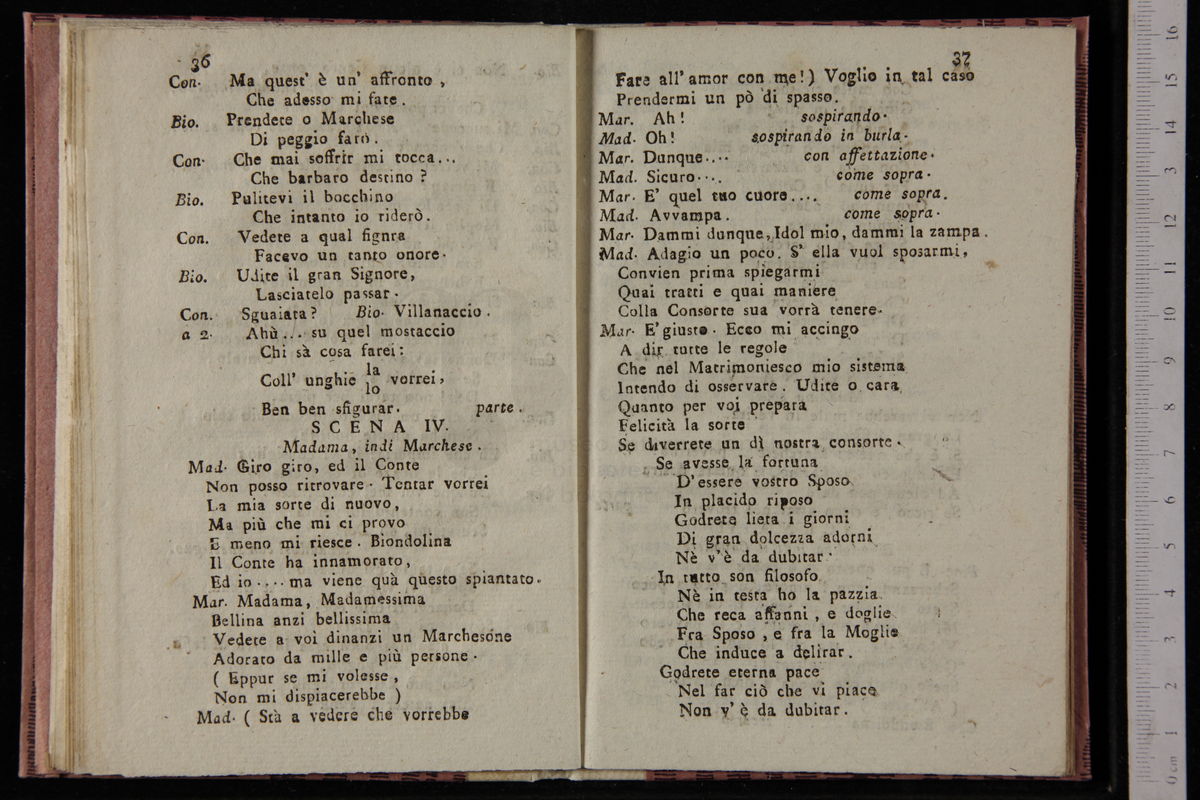 36
Con. Ma quest' è un' affronto ,
Che adesso mi fate .
Bio. Prendete o Marchese
Di peggio farò .
Con. Che mai soffrir mi tocca...
Che barbaro destino ?
Bio. Pulitevi il bocchino
Che intanto io riderò.
Con. Vedete a qual fignra
Facevo un tanto onore.
Bio. Udite il gran Signore,
Lasciatelo passar .
Con. Sguaiata ? Bio. Villanaccio .
a 2. Ahù ... su quel mostaccio
Chi sà cosa farei :
la
Coll' unghie vorrei,
lo
Ben ben sfigurar. parte .
SCENA IV.
Madama, indi Marchese .
Mad. Giro giro, ed il Conte
Non posso ritrovare . Tentar vorrei
La mia sorte di nuovo,
Ma più che mi ci provo
E meno mi riesce . Biondolina
Il Conte ha innamorato,
Ed io .... ma viene quà questo spiantato.
Mar. Madama, Madamessima
Bellina anzi bellissima
Vedete a voi dinanzi un Marchesone
Adorato da mille e più persone .
( Eppur se mi volesse ,
Non mi dispiacerebbe )
Mad. ( Stà a vedere che vorrebbe
37
Fare all' amor con me! ) Voglio in tal caso
Prendermi un pò di spasso.
Mar. Ah ! sospirando.
Mad. Oh ! sospirando in burla.
Mar. Dunque.... con affettazione.
Mad. Sicuro.... come sopra.
Mar. E' quel tuo cuore.... come sopra.
Mad. Avvampa . come sopra.
Mar. Dammi dunque, Idol mio, dammi la zampa .
Mad. Adagio un poco. S' ella vuol sposarmi,
Convien prima spiegarmi
Quai tratti e quai maniere
Colla Consorte sua vorrà tenere.
Mar. E' giusto . Ecco mi accingo
A dir tutte le regole
Che nel Matrimoniesco mio sistema
Intendo di osservare . Udite o cara
Quanto per voi prepara
Felicità la sorte
Se diverrete un dì nostra consorte .
Se avesse la fortuna
D' essere vostro Sposo
In placido riposo
Godrete lieta i giorni
Di gran dolcezza adorni
Nè v' è da dubitar.
In tutto son filosofo
Nè in testa ho la pazzia
Che reca affanni , e doglie
Fra Sposo , e fra la Moglie
Che induce a delirar .
Godrete eterna pace
Nel far ciò che vi piace
Non v' è da dubitar .
0 cm 1 2 3 4 5 6 7 8 9 10 11 12 13 14 15 16